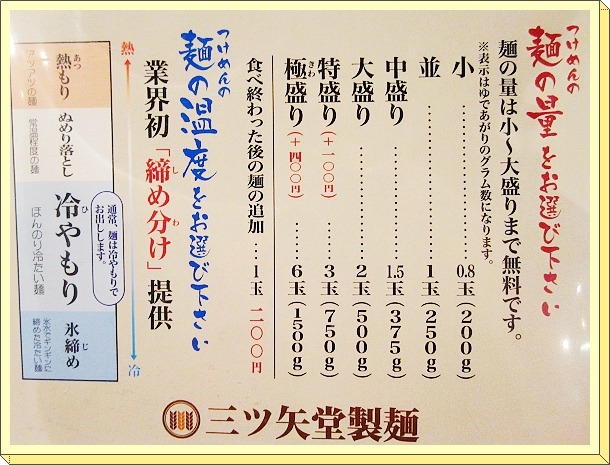 つけめんの
麺の量をお選び下さい
麺の量は小〜大盛りまで無料です。
※表示はゆであがりのグラム数になります。
小 ………… 0.8玉(200g)
並 ………… 1玉(250g)
中盛り ………… 1.5玉(375g)
大盛り ………… 2玉(500g)
特盛り(+一〇〇円) …… 3玉(750g)
極盛り(+四〇〇円) …… 6玉(1500g)
食べ終わった後の麺の追加 … 1玉 二〇〇円
つけめんの
麺の温度をお選び下さい
業界初「締め分け」提供
熱
冷
熱もり
アツアツの麺
ぬめり落とし
常温程度の麺
通常、麺は冷やもりで
お出しします。
冷やもり
ほんのり冷たい麺
氷締め
氷水でギンギンに
締めた冷たい麺
三ツ矢堂製麺